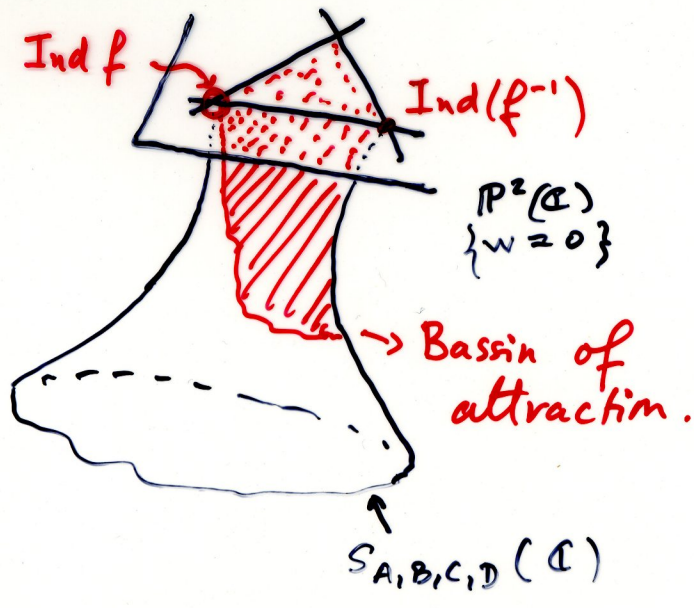 Ind f
Ind(f⁻¹)
ℙ²(ℂ)
{w = 0}
Bassin of
attraction.
S_{A,B,C,D}(ℂ)